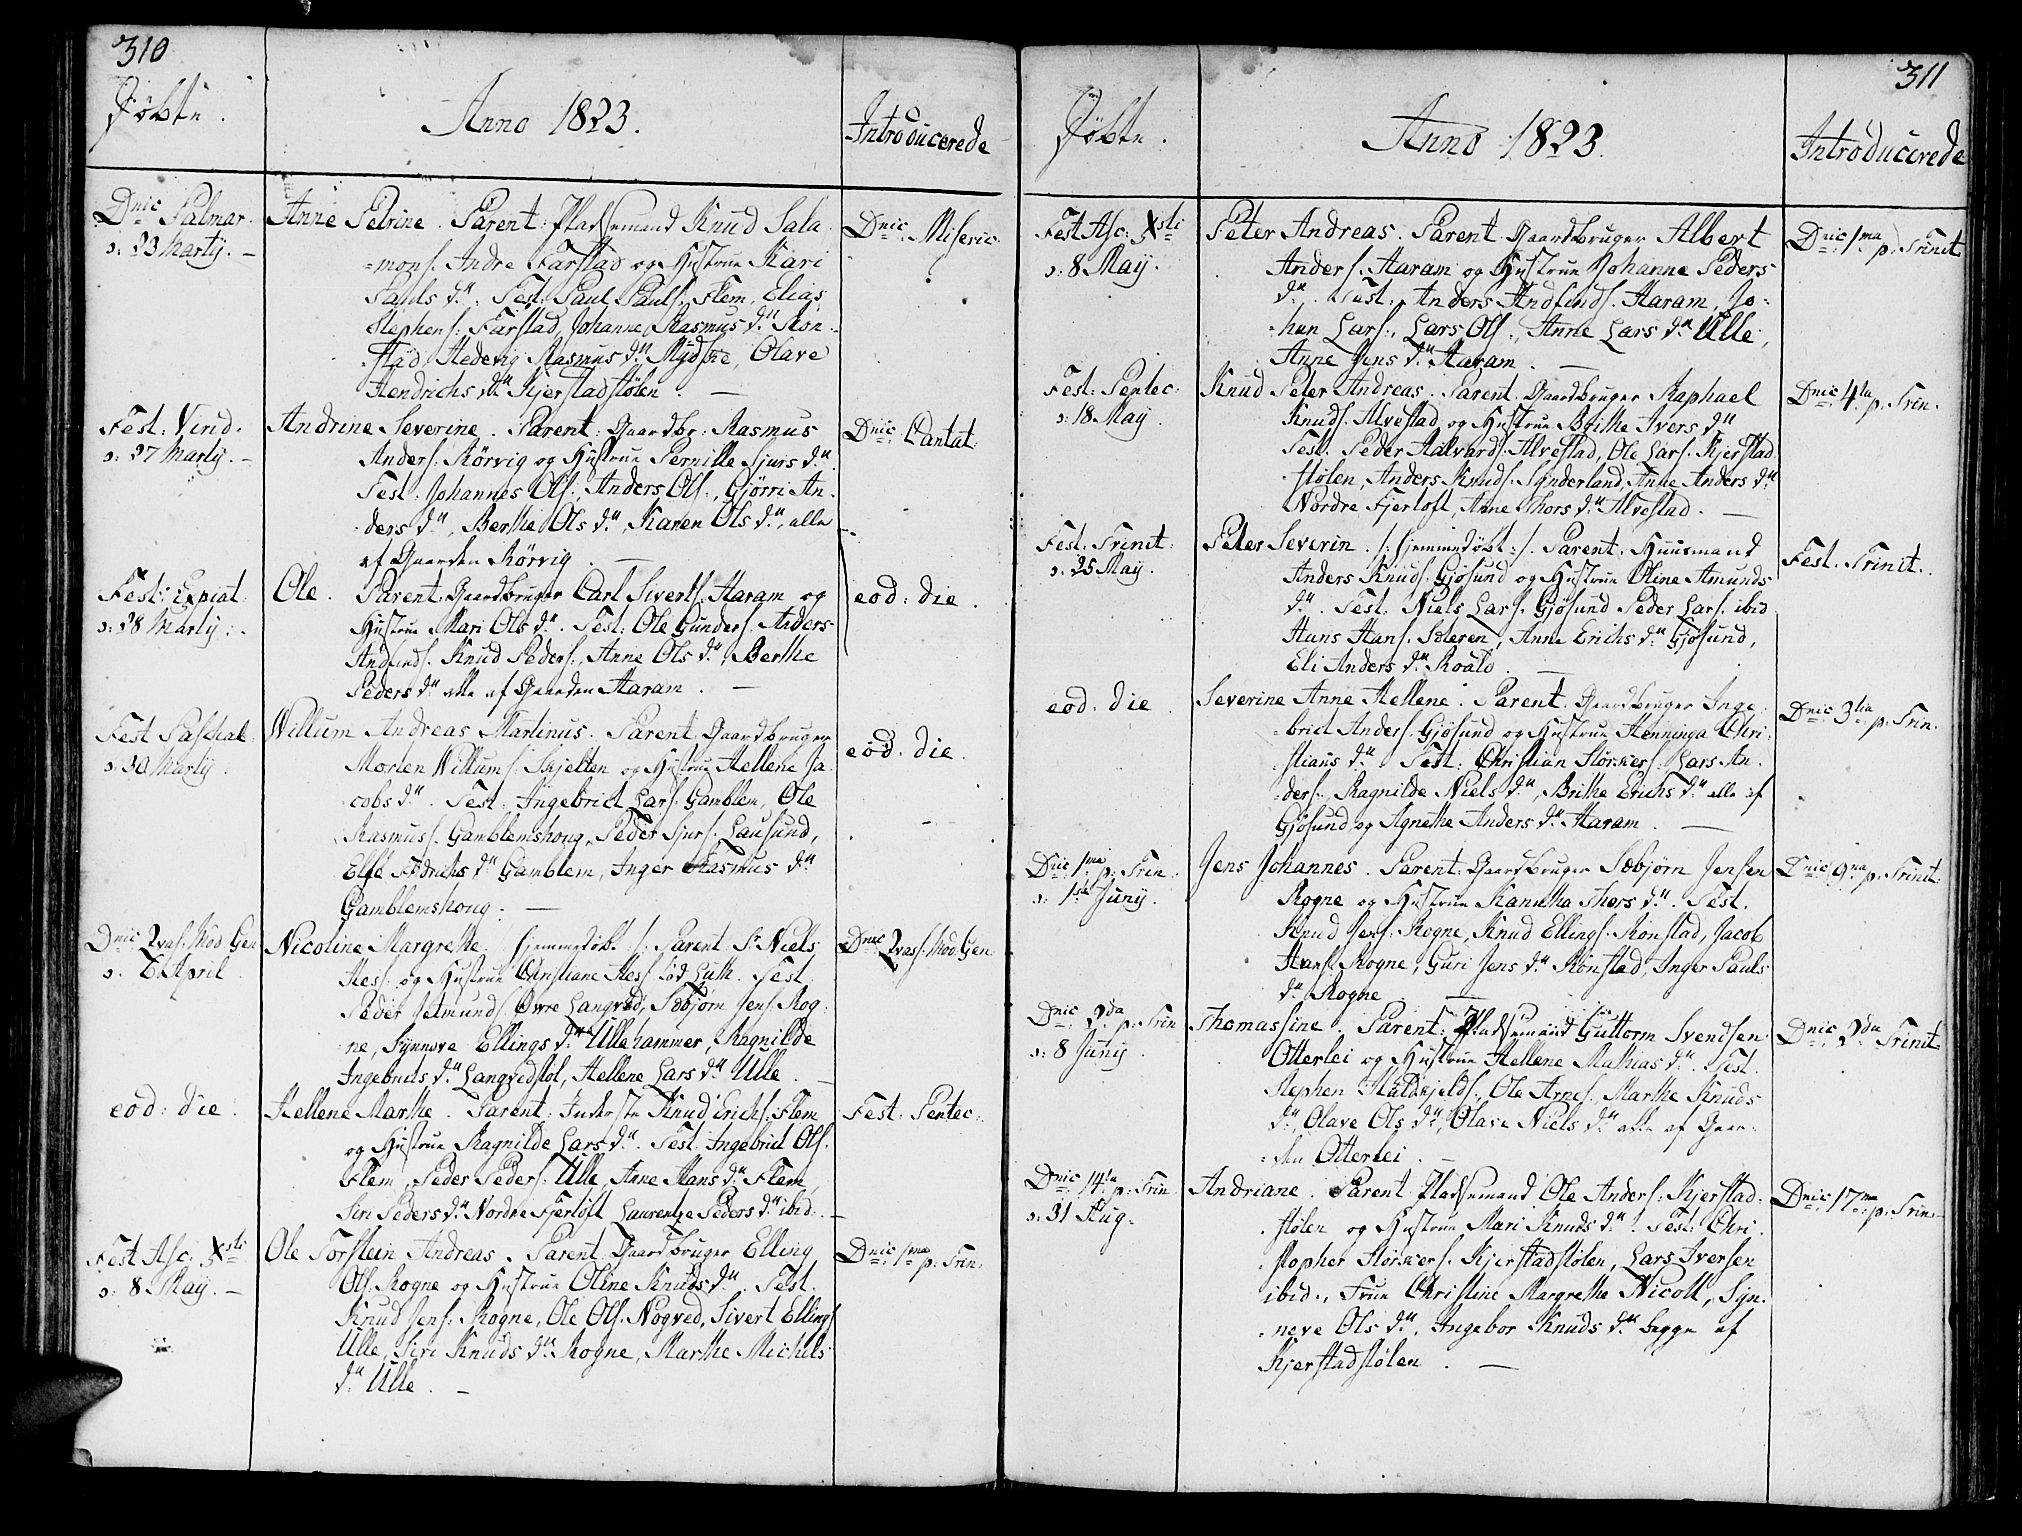 310
Døbte.
Anno 1823.
Introducerede
Dnic Palmar.
ↄ: 23 Martij. —
Anne Petrine. Parent: Pladsemand Knud Sala
=mons. Andre Farstad og Hustrue Kari
Pauls dr. Test: Paul Pauls. Flem, Elias
Stephens. Farstad, Johanne Rasmus dr Ron=
=stad Hedevig Rasmus dr Mydske, Olave
Hendrichs dr Kjerstadstølen. —
Dnic: Miseric:
Fest: Virid.
ↄ: 27 Martij. —
Andrine Severine. Parent: Gaardbr: Rasmus
Anders. Rörvig og Hustrue Pernille Sjurs dr.
Test: Johannes Ols., Anders Ols., Gjörri An=
=ders dr, Berthe Ols dr, Karen Ols dr, alle
af Gaarden Rörvig. —
Dnic: Cantat:
Fest: Expiat.
ↄ: 28 Martij. -
Ole. Parent: Gaardbruger Carl Siverts. Haram og
Hustrue Mari Ols dr. Test: Ole Gunders. Anders
Andfinds. Knud Peders., Anne Ols dr, Berthe
Peders dr alle af Gaarden Haram. —
eod: die.
Fest Paschal.
ↄ: 30 Martij.
Willum Andreas Martinus. Parent Gaardbruger
Morten Willums. Skjelten og Hustrue Hellene Ja=
=cobs dr. Test: Ingebrict Lars. Gamblem, Ole
Rasmuss. Gamblemshoug, Peder Sjurs. Lausund,
Else Fredrichs dr Gamblem, Inger Rasmus dr
Gamblemshoug. —
eod. die.
Dnic Qvas. Mod. Gen
ↄ. 6 April
Nicoline Margrethe. hjemmedøbt :/. Parent Sr Niels
Hess. og Hustrue Christiane Hess. fød Luth. Test.
Peder Jetmunds. Øvre Langved, Sæbjørn Jens. Rog=
ne, Synnove Ellings dr Ullehammer, Ragnilde
Ingebricts dr Langvedstøl, Hellene Lars dr Ulle. —
Dnic Qvas. Mod. Gen.
eod: die.
Hellene Marthe. Parent: Inderste Knud Erichs. Flem
og Hustrue Ragnilde Lars dr. Test: Ingebrict Ols.
Flem, Peder Peders. Ulle, Anne Hans dr Flem,
Siri Peders dr Nordre Fjerloft Laurentze Peders dr ibid. —
Fest: Pentec:
Fest. Asc: Xsti
ↄ: 8 May. —
Ole Torstein Andreas. Parent: Gaardbruger Elling
Ols. Rogne og Hustrue Oline Knuds dr. Test.
Knud Jens. Rogne, Ole Ols. Nogved, Sivert Ellings.
Ulle, Siri Knuds dr Rogne, Marthe Michels
dr Ulle. —
Dnic: 1ma p: Trin.
311
Døbte.
Anno 1823.
Introducerede
Fest Asc: Xsti
ↄ: 8 May.
Peter Andreas. Parent. Gaardbruger Albert
Anders. Haram og Hustrue Johanne Peders
dr. Test: Anders Andfinds. Haram, Jo=
=han Lars., Lars Ols., Anne Lars dr Ulle,
Anne Jens dr Haram. —
Dnic: 1ma p: Trinit.
Fest: Pentec:
ↄ: 18 May.
Knud Peter Andreas. Parent. Gaardbruger Raphael
Knuds. Alvestad og Hustrue Brithe Ivers dr
Test. Peder Hallvards. Alvestad, Ole Lars. Kjerstad
stølen, Anders Knuds. Synderland, Anne Anders dr
Nordre Fjerloft, Anne Thors dr Alvestad. —
Dnic: 4ta p: Trin.
Fest. Trinit:
ↄ: 25 May.
Peter Severin. /: hjemmedøbt :/. Parent. Huusmand
Anders Knuds. Gjösund og Hustrue Oline Amunds
dr. Test. Niels Lars. Gjösund Peder Lars. ibid
Hans Hans. Stleren, Anne Erichs dr Gjösund,
Eli Anders dr Roald. —
Fest. Trinit.
eod: die.
Severine Anne Hellene. Parent. Gaardbruger Inge=
=brict Anders. Gjösund og Hustrue Henninga Chri=
=stians dr. Test: Christian Störkers. Lars An=
=ders. Ragnilde Niels dr, Brithe Erichs dr alle af
Gjösund og Agnethe Anders dr Haram. —
Dnic 3tia p: Trin.
Dnic 1ma p: Trin.
ↄ. 1ste Junij.
Jens Johannes. Parent: Gaardbruger Sæbjörn Jensen
Rogne og Hustrue Kanutha Thors dr. Test.
Knud Jens. Rogne, Knud Ellings. Rönstad, Jacob
Hans. Rogne, Guri Jens dr Rönstad, Inger Pauls
dr Rogne —
Dnic 9na p: Trinit:
Dnic: 2da p: Trin
ↄ: 8 Junij
Thomassine. Parent: Pladsemand Guttorm Svendsen
Otterlei og Hustrue Hellene Mathias dr. Test.
Stephen Haldkjelds., Ole Arnes., Marthe Knuds
dr, Olave Ols dr, Olave Niels dr alle af Gaar=
=den Otterlei. —
Dnic: 2da Trinit:
Dnic 14ta p: Trin
ↄ: 31 Aug.
Andriane. Parent: Pladsemand Ole Anders: Kjerstad=
=stølen og Hustrue Mari Knuds dr. Test: Chri=
=stopher Störkers. Kjerstadstølen, Lars Iversen
ibid., Frue Christine Margrethe Nicoll, Syn=
=neve Ols dr, Ingebor Knuds dr begge af
Kjerstadstølen. —
Dnic: 17ma p: Trin.